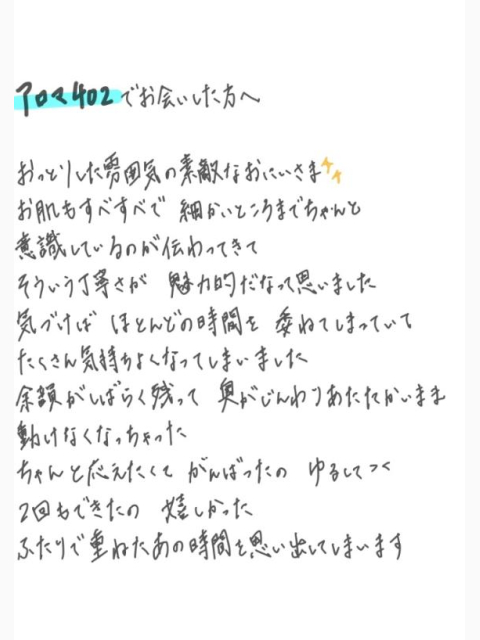 アロマ402でお会いした方へ
おっとりした雰囲気の素敵なおにいさま
お肌もすべすべで 細かいところまでちゃんと
意識しているのが伝わってきて
そういう丁寧さが 魅力的だなって思いました
気づけば ほとんどの時間を 委ねてしまっていて
たくさん気持ちよくなってしまいました
余韻がしばらく残って 奥がじんわりあたたかいまま
動けなくなっちゃった
ちゃんと応えたくて がんばったの ゆるしてつく
2回もできたの 嬉しかった
ふたりで重ねたあの時間を思い出してしまいます